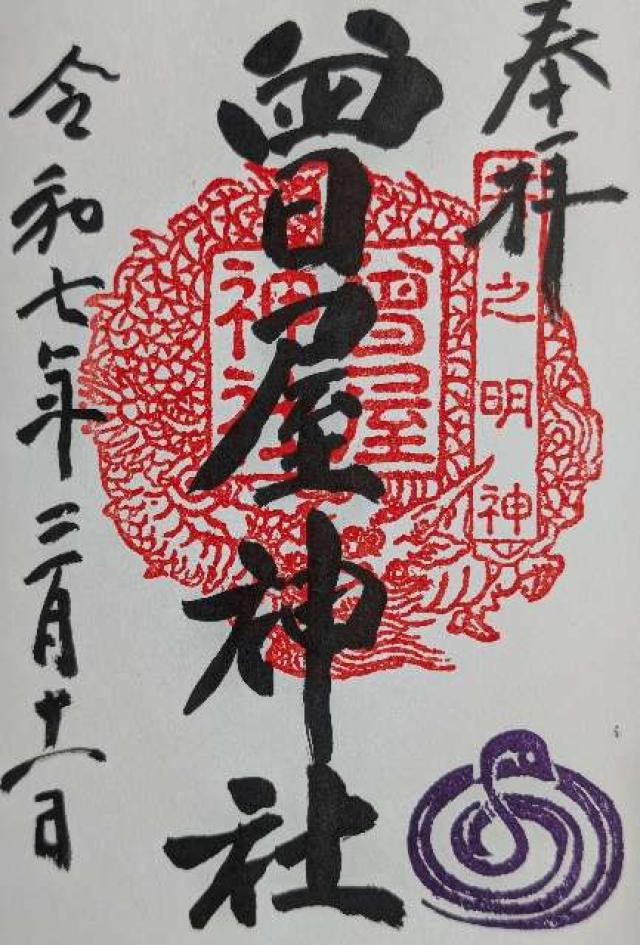 奉拝
井之明神
曾屋神社
曾屋神社
令和七年二月十八日